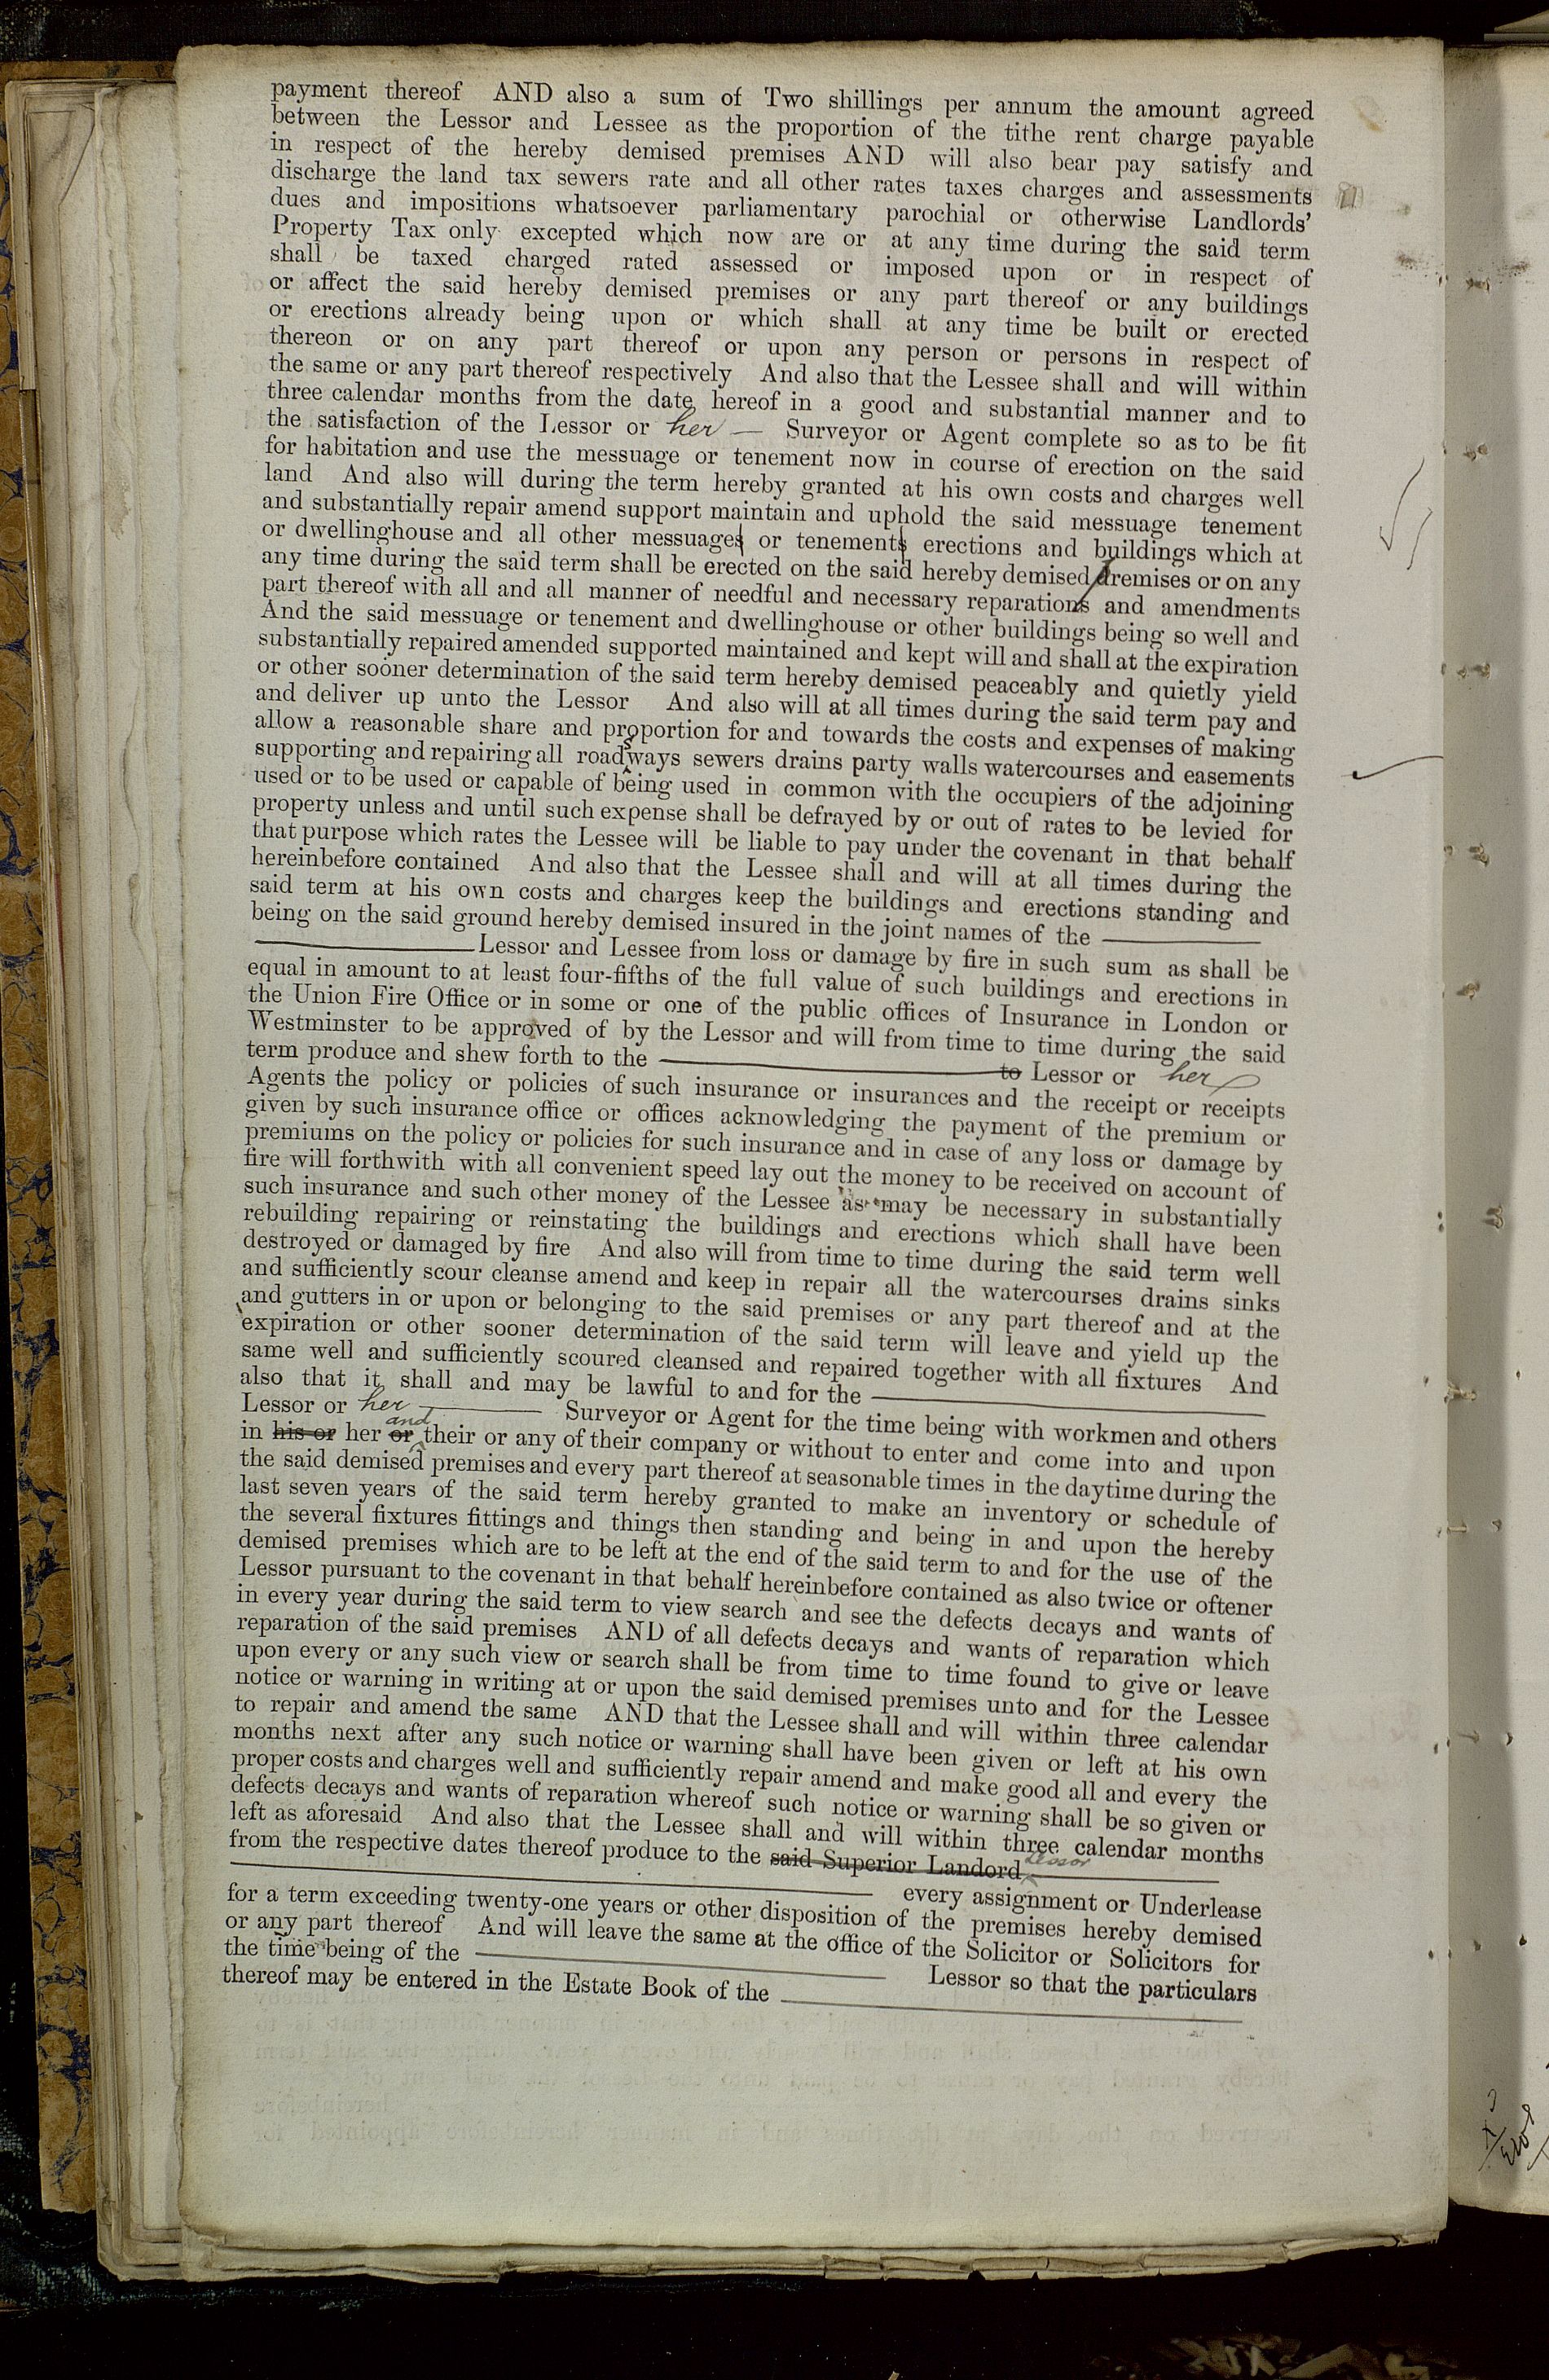 payment thereof AND also a sum of Two shillings per annum the amount agreed
between the Lessor and Lessee as the proportion of the tithe rent charge payable
in respect of the hereby demised premises AND will also bear pay satisfy and
discharge the land tax sewers rate and all other rates taxes charges and assessments
dues and impositions whatsoever parliamentary parochial or otherwise Landlords'
Property Tax only excepted which now are or at any time during the said term
shall be taxed charged rated assessed or imposed upon or in respect of
or affect the said hereby demised premises or any part thereof or any buildings
or erections already being upon or which shall at any time be built or erected
thereon or on any part thereof or upon any person or persons in respect of
the same or any part thereof respectively And also that the Lessee shall and will within
three calendar months from the date hereof in a good and substantial manner and to
the satisfaction of the Lessor or her — Surveyor or Agent complete so as to be fit
for habitation and use the messuage or tenement now in course of erection on the said
land And also will during the term hereby granted at his own costs and charges well
and substantially repair amend support maintain and uphold the said messuage tenement
or dwellinghouse and all other messuages or tenements erections and buildings which at
any time during the said term shall be erected on the said hereby demised premises or on any
part thereof with all and all manner of needful and necessary reparations and amendments
And the said messuage or tenement and dwellinghouse or other buildings being so well and
substantially repaired amended supported maintained and kept will and shall at the expiration
or other sooner determination of the said term hereby demised peaceably and quietly yield
and deliver up unto the Lessor And also will at all times during the said term pay and
allow a reasonable share and proportion for and towards the costs and expenses of making
supporting and repairing all roads ways sewers drains party walls watercourses and easements
used or to be used or capable of being used in common with the occupiers of the adjoining
property unless and until such expense shall be defrayed by or out of rates to be levied for
that purpose which rates the Lessee will be liable to pay under the covenant in that behalf
hereinbefore contained And also that the Lessee shall and will at all times during the
said term at his own costs and charges keep the buildings and erections standing and
being on the said ground hereby demised insured in the joint names of the
Lessor and Lessee from loss or damage by fire in such sum as shall be
equal in amount to at least four-fifths of the full value of such buildings and erections in
the Union Fire Office or in some or one of the public offices of Insurance in London or
Westminster to be approved of by the Lessor and will from time to time during the said
term produce and shew forth to the to Lessor or her
Agents the policy or policies of such insurance or insurances and the receipt or receipts
given by such insurance office or offices acknowledging the payment of the premium or
premiums on the policy or policies for such insurance and in case of any loss or damage by
fire will forthwith with all convenient speed lay out the money to be received on account of
such insurance and such other money of the Lessee as may be necessary in substantially
rebuilding repairing or reinstating the buildings and erections which shall have been
destroyed or damaged by fire And also will from time to time during the said term well
and sufficiently scour cleanse amend and keep in repair all the watercourses drains sinks
and gutters in or upon or belonging to the said premises or any part thereof and at the
expiration or other sooner determination of the said term will leave and yield up the
same well and sufficiently scoured cleansed and repaired together with all fixtures And
also that it shall and may be lawful to and for the
Lessor or her Surveyor or Agent for the time being with workmen and others
in his or her or and their or any of their company or without to enter and come into and upon
the said demised premises and every part thereof at seasonable times in the daytime during the
last seven years of the said term hereby granted to make an inventory or schedule of
the several fixtures fittings and things then standing and being in and upon the hereby
demised premises which are to be left at the end of the said term to and for the use of the
Lessor pursuant to the covenant in that behalf hereinbefore contained as also twice or oftener
in every year during the said term to view search and see the defects decays and wants of
reparation of the said premises AND of all defects decays and wants of reparation which
upon every or any such view or search shall be from time to time found to give or leave
notice or warning in writing at or upon the said demised premises unto and for the Lessee
to repair and amend the same AND that the Lessee shall and will within three calendar
months next after any such notice or warning shall have been given or left at his own
proper costs and charges well and sufficiently repair amend and make good all and every the
defects decays and wants of reparation whereof such notice or warning shall be so given or
left as aforesaid And also that the Lessee shall and will within three calendar months
from the respective dates thereof produce to the said Superior Landord Lessor
every assignment or Underlease
for a term exceeding twenty-one years or other disposition of the premises hereby demised
or any part thereof And will leave the same at the office of the Solicitor or Solicitors for
the time being of the Lessor so that the particulars
thereof may be entered in the Estate Book of the